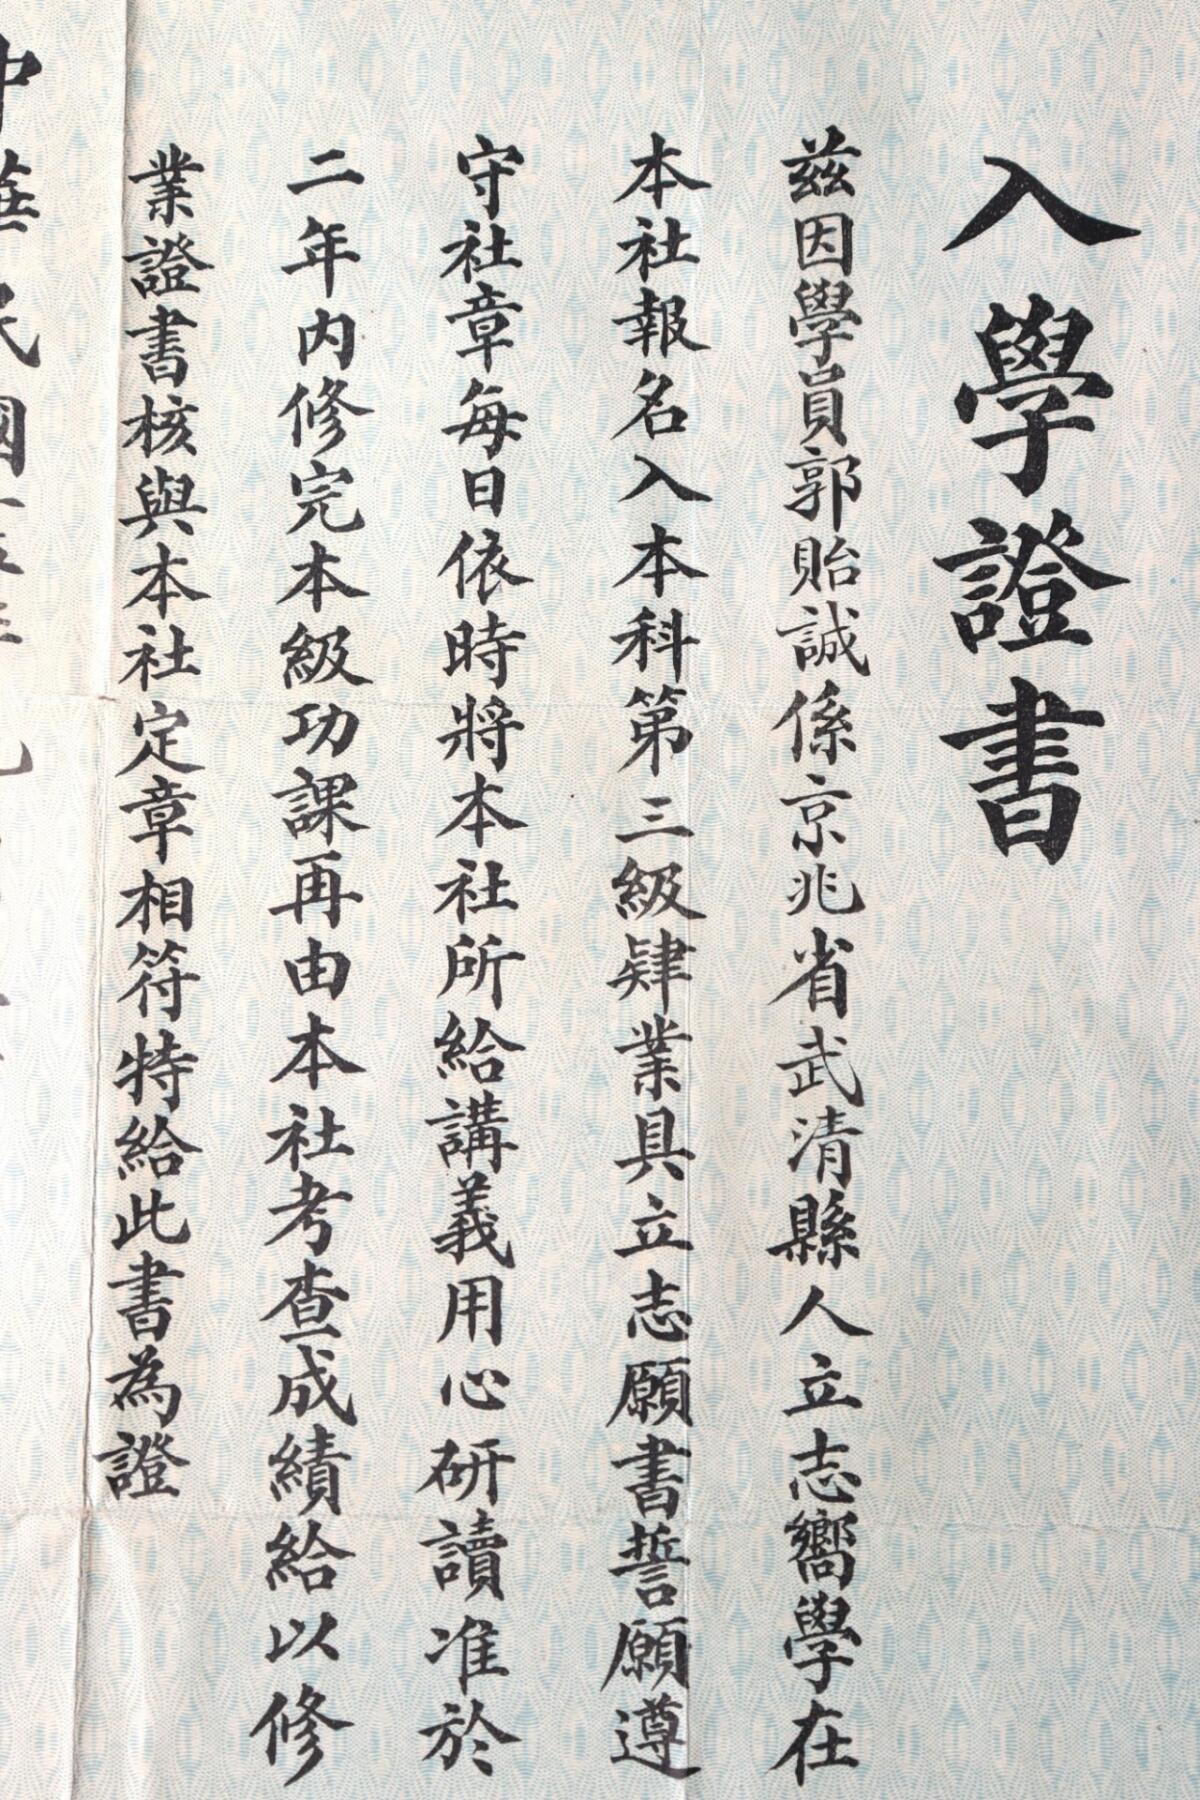 入學證書
茲因學員郭貽誠係京兆省武清縣人立志嚮學在
本社報名入本科第三級肄業具立志願書誓願遵
守社章每日依時將本社所給講義用心研讀准於
二年內修完本級功課再由本社考查成績給以修
業證書核與本社定章相符特給此書為證
中華民國十五年九